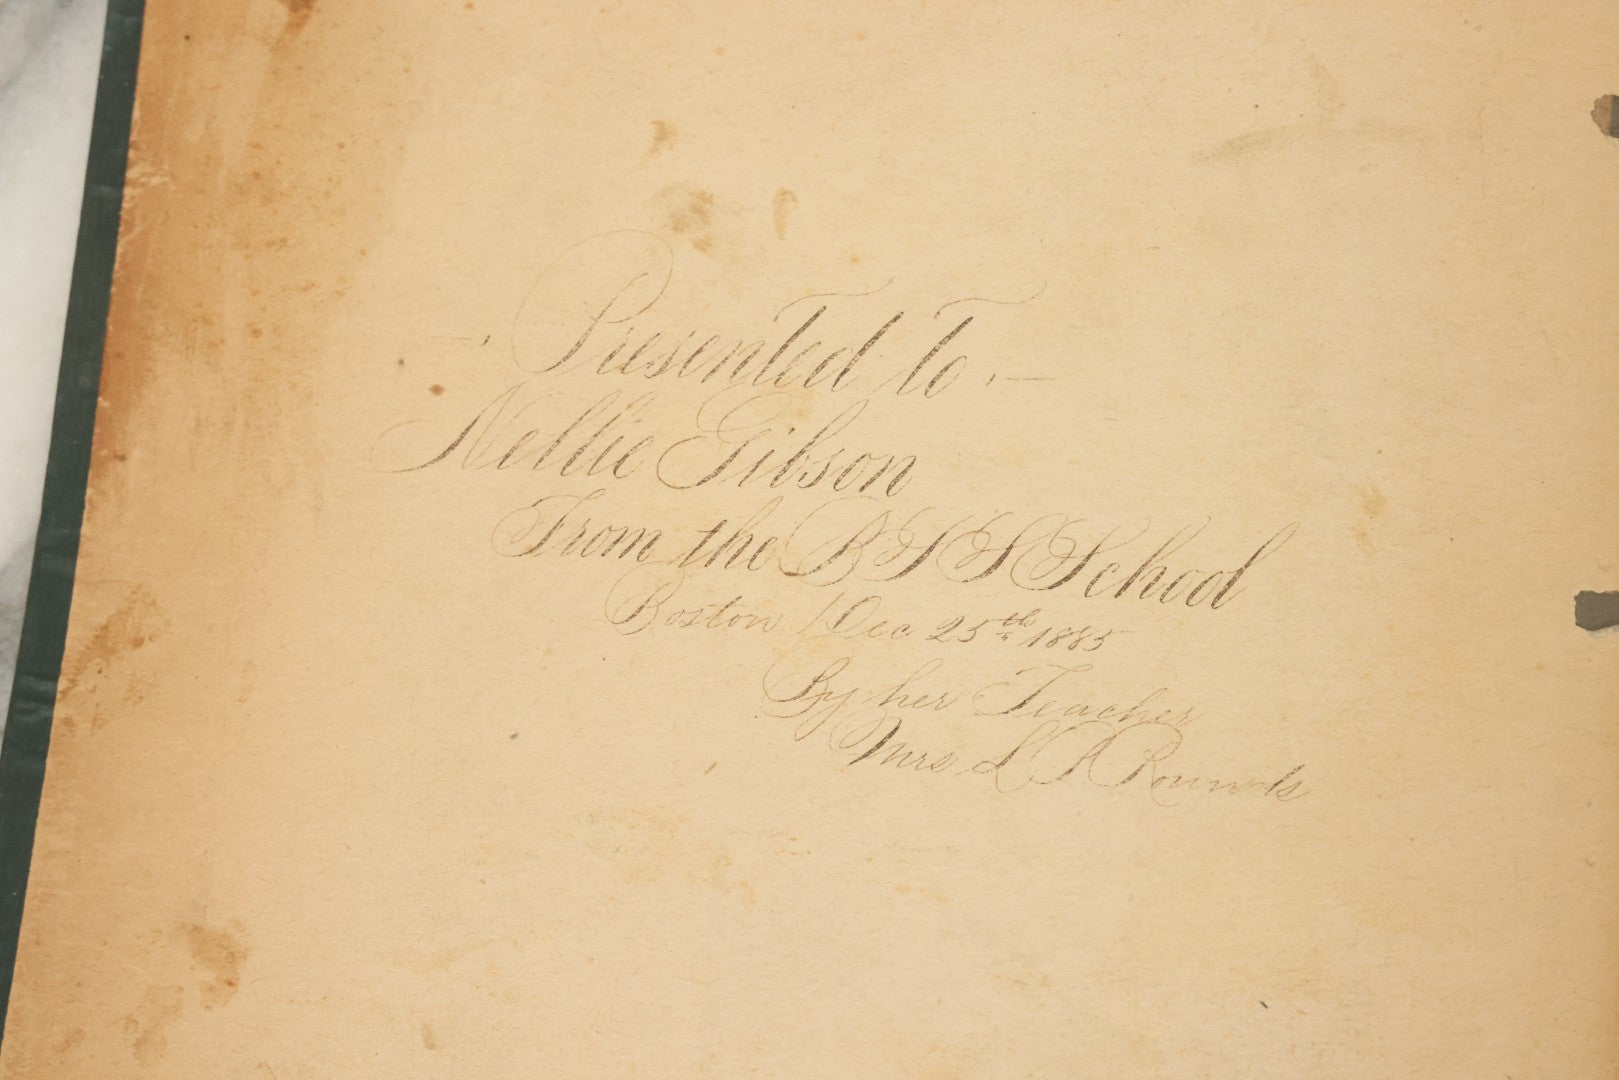 Presented to . —
Nellie Gibson
From the B S S School
Boston Dec 25th 1885
By her Teacher
Mrs L A Rounds